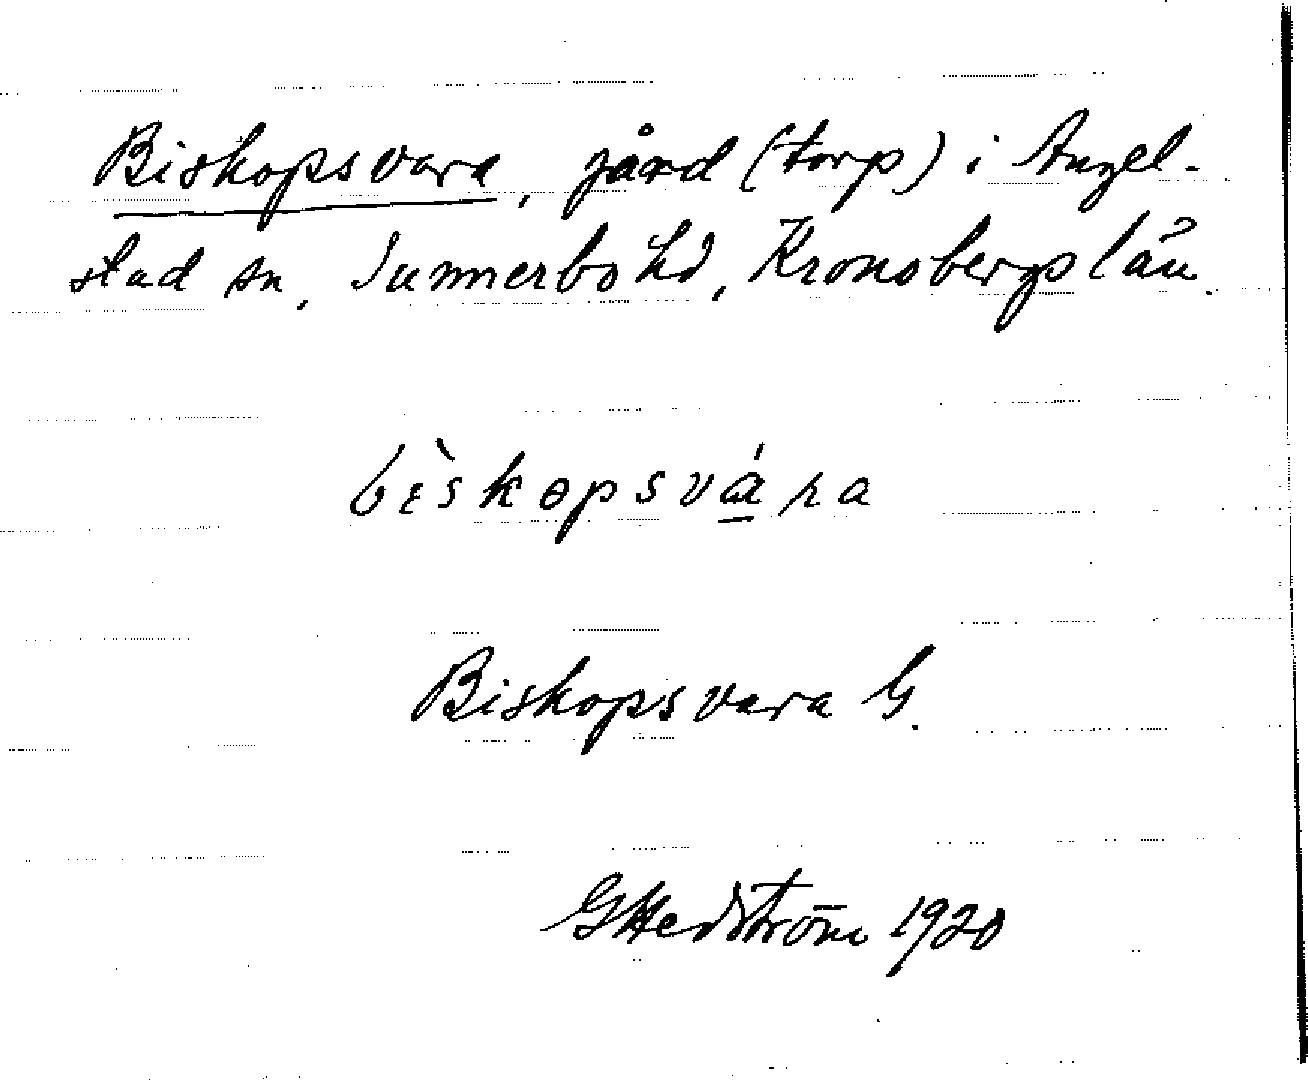 Biskopsvara, gård (torp) i Angel-
stad sn, Sunnerbo hd, Kronobergs län.
bèskopsvára
Biskopsvara G.
GHedström 1920